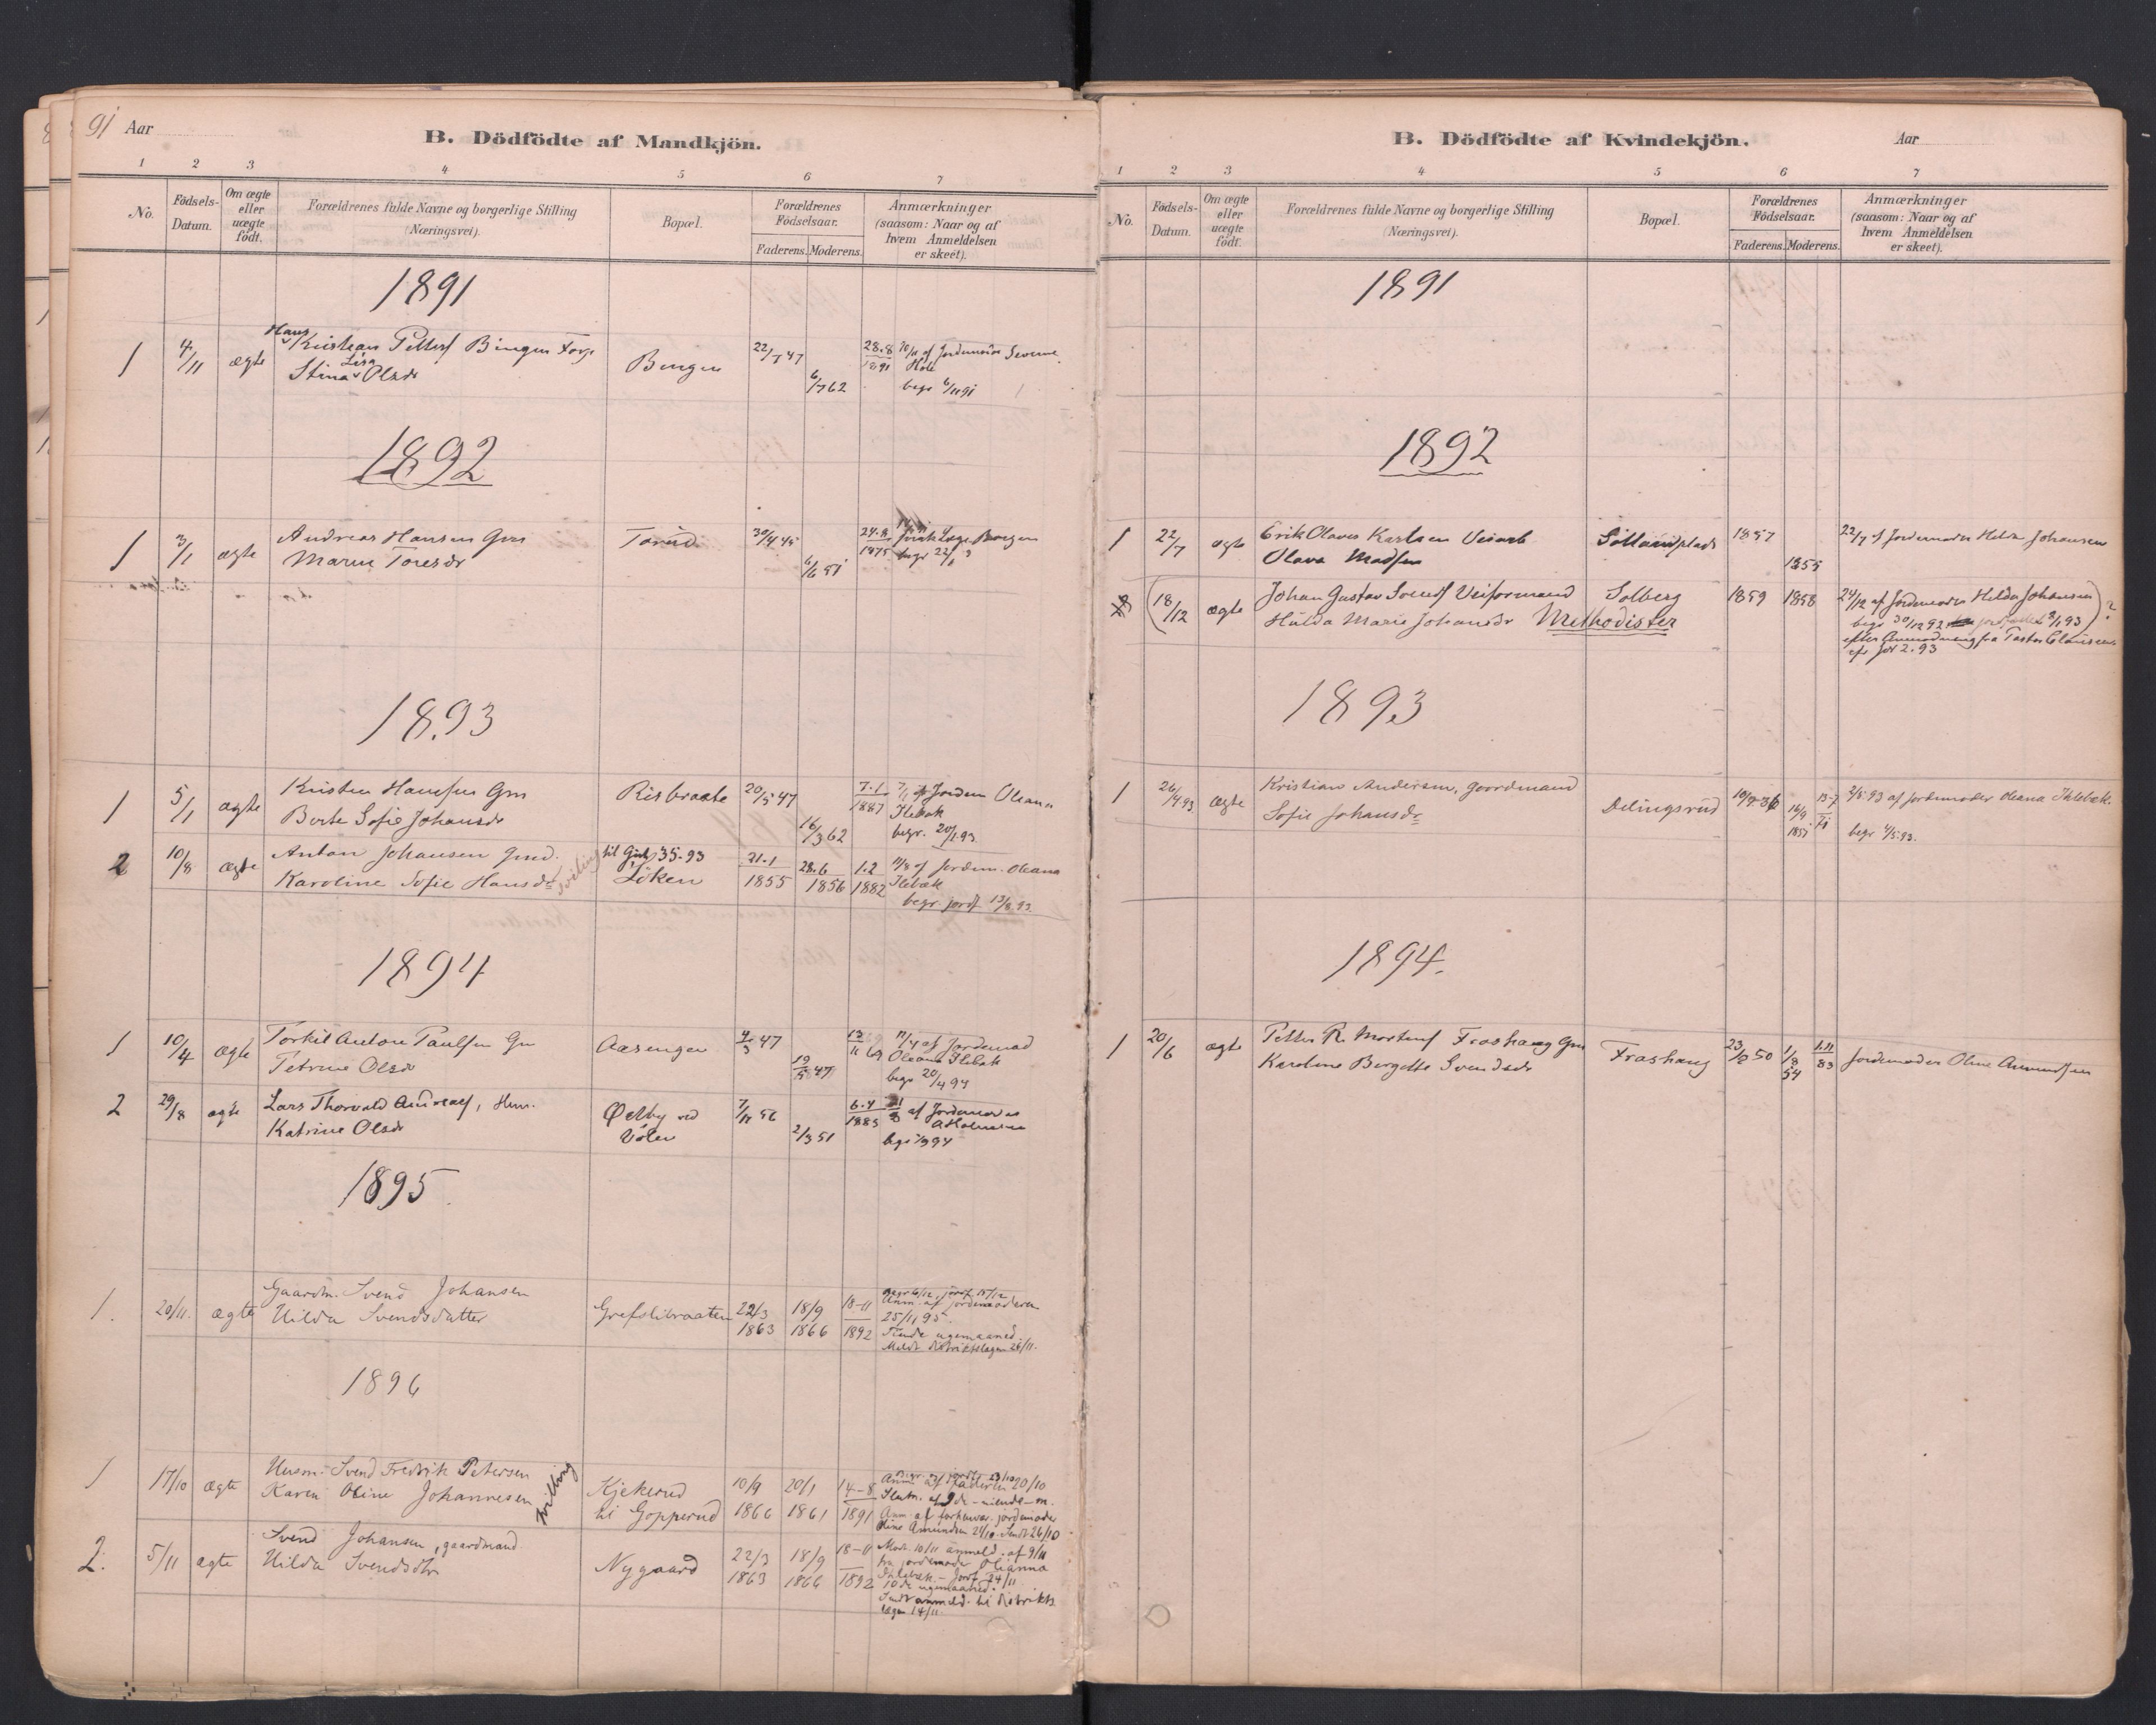 91 Aar
B. Dödfödte af Mandkjön.
1 2 3 4 5 6 7
No.
Födsels-
Datum.
Om ægte
eller
uægte
födt.
Forældrenes fulde Navne og borgerlige Stilling
(Næringsvei).
Bopæl.
Forældrenes
Födselsaar.
Faderens. Moderens.
Anmærkninger
(saasom: Naar og af
hvem Anmeldelsen
er skeet).
1891
1 4/11 ægte Hans Kristian Petters Bingen Forp Bingen 22/7 47 28.8 10/11 af Jordemoder Severine
Stina Lisa Olsdr 6/7 62 1891 Hole
begr 6/11 91
1892
1 3/1 ægte Andreas Hansen Gm Torud 30/4 45 24.8
Maren Toresdr 6/6 51 1875 begr 22/1
1893
1 5/1 ægte Kristen Hansen Gm Risbraate 20/5 47 7.1 7/1 af Jordem Oleana
Berte Sofie Johansdr 16/3 62 1887 Ilebæk
begr. 20/1 93
2 10/8 ægte Anton Johansen Gmd. tvilling til Gjuts 35-93 21.1 28.6 1.2 11/8 af Jordem. Oleana
Karoline Sofie Hansdr Löken 1855 1856 1882 Ilebæk
begr. jordf 13/8 93.
1894
1 10/4 ægte Torkil Anton Paulsen Gm Aasengen 4/3 47 11/4 af Jordemod
Petrine Olsdr 19/5 47 11 69 Oleana Ilebæk
begr 20/4 94
2 29/8 ægte Lars Thorvald Andreas, Hum. Østby ved 7/11 56 6.4 af Jordemoder
Katrine Olsdr Volen 2/3 51 1883 A Holmsen
begr 1/9 94
1895
1. 20/11. ægte Gaardm. Svend Johansen Grefslibraaten 22/3 18/9 18-11 Begr 6/12, jordf. 15/12
Hilda Svendsdatter 1863 1866 1892 Anm. af jordemoderen
25/11 95.
Tiende ugemaaned.
Meldt distriktslægen 26/11.
1896
1 17/10 ægte Husm. Svend Fredrik Petersen tvilling Kjekerud 10/9 20/1 14-8 Begr. og jordf. 23/10
Karen Oline Johannesen til Gopperud 1866 1861 1891 Anm af faderen 20/10
Slutn. af 9de - niende - m.
Anm. af forhenvær. jordemoder
Oline Amundsen 21/10. Sendt 26/10
2. 5/11 ægte Svend Johansen, gaardmand Nygaard 22/3 18/9 18-11 Modt. 10/11 anmeld. af 9/11
Hilda Svendsdtr 1863 1866 1892 fra jordemoder Olianna
Ihlebæk. - Jordf 24/11
10de ugemaaned.
Sendt anmeld. til distrikts
lægen 14/11.
B. Dödfödte af Kvindekjön.
Aar
1 2 3 4 5 6 7
No.
Födsels-
Datum.
Om ægte
eller
uægte
födt.
Forældrenes fulde Navne og borgerlige Stilling
(Næringsvei).
Bopæl.
Forældrenes
Födselsaar.
Faderens. Moderens.
Anmærkninger
(saasom: Naar og af
hvem Anmeldelsen
er skeet).
1891
1892
1 22/7 ægte Erik Olaves Karlsen Veiarb Sollandplads 1857 22/7 af Jordemoder Helda Johansen
Olava Madsen 1855
(18/12 ægte Johan Gustav Svends Veiformand Solberg 1859 1858 24/12 af Jordemoder Helda Johansen) ?
Hulda Marie Johansdr Methodister begr 30/12 92 jordfæstet 8/1 93
efter Anmodning fra Pastor Clausen
cfr Jor 2.93
1893
1 26/4.93 ægte Kristian Andersen, gaardmand Delingsrud 10/9-36 13-7 2/5.93 af jordemoder Oleana Ihlebæk.
Sofie Johansdr 16/9 1851 71 begr 4/5.93.
1894.
1 20/6 ægte Petter R. Mortens Froshaug Gm Froshaug 23/2 50 1/8 54 1.11 83 Jordemoder Oline Amundsen
Karoline Bergette Svendsdr